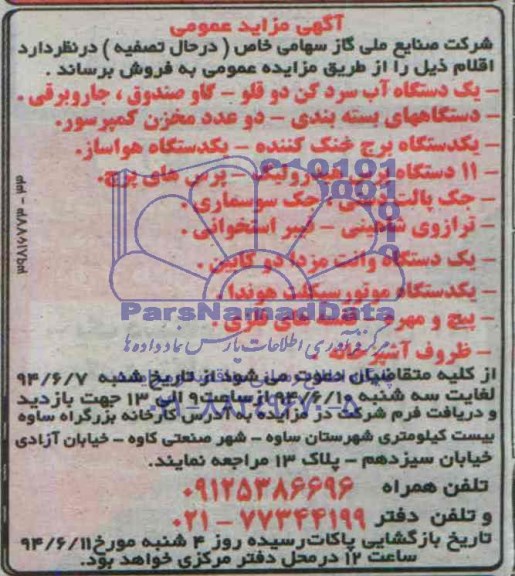 آگهی مزاید عمومی
شرکت صنایع ملی گاز سهامی خاص (درحال تصفیه) درنظردارد
اقلام ذیل را از طریق مزایده عمومی به فروش برساند.
- یک دستگاه آب سرد کن دو قلو - گاو صندوق، جاروبرقی.
- دستگاههای بسته بندی - دو عدد مخزن کمپرسور.
- یکدستگاه برج خنک کننده - یکدستگاه هواساز.
- ۱۱ دستگاه پرس هیدرولیک - پرس های پرچ.
- جک پالت دستی، جک سوسماری.
- ترازوی شاهینی - فیبر استخوانی.
- یک دستگاه وانت مزدا دو کابین.
- یکدستگاه موتورسیکلت هوندا.
- پیچ و مهره - قفسه های فلزی.
- ظروف آشپزخانه
از کلیه متقاضیان دعوت می شود از تاریخ شنبه ۹۴/۶/۷
لغایت سه شنبه ۹۴/۶/۱۰ ازساعت ۹ الی ۱۳ جهت بازدید
و دریافت فرم شرکت در مزایده به آدرس کارخانه بزرگراه ساوه
بیست کیلومتری شهرستان ساوه - شهر صنعتی کاوه - خیابان آزادی
خیابان سیزدهم - پلاک ۱۳ مراجعه نمایند.
تلفن همراه ۰۹۱۲۵۳۸۶۶۹۶
و تلفن دفتر ۷۷۳۴۴۱۹۹ - ۰۲۱
تاریخ بازگشایی پاکات رسیده روز ۴ شنبه مورخ ۹۴/۶/۱۱
ساعت ۱۲ درمحل دفتر مرکزی خواهد بود.
۳۹۸۱۶۷۸۳ - ۳۳
ParsNamadData
مرکز فرآوری اطلاعات پارس نماد داده ها